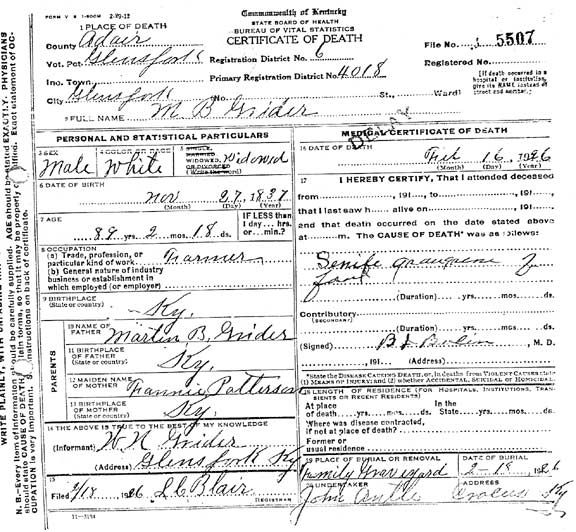 FORM V S 1-500M 2-19-12
Commonwealth of Kentucky
STATE BOARD OF HEALTH
BUREAU OF VITAL STATISTICS
CERTIFICATE OF DEATH
1 PLACE OF DEATH
County Adair
File No. 5507
Vot. Pct. Glensfork Registration District No. 6
Registered No.
Inc. Town Primary Registration District No. 4018
[If death occurred in a hospital or institution, give its NAME instead of street and number.]
City Glensfork No. St., Ward)
2 FULL NAME M B Grider
PERSONAL AND STATISTICAL PARTICULARS
3 SEX Male
4 COLOR OR RACE White
5 SINGLE, MARRIED WIDOWED, OR DIVORCED (Write the word) Widowed
6 DATE OF BIRTH
Nov 27, 1837
(Month) (Day) (Year)
7 AGE
88 yrs. 2 mos. 18 ds.
IF LESS than 1 day... hrs. or...min.?
8 OCCUPATION
(a) Trade, profession, or particular kind of work Farmer
(b) General nature of industry
business or establishment in
which employed (or employer)
9 BIRTHPLACE
(State or country) Ky.
PARENTS
10 NAME OF FATHER Martin B. Grider
11 BIRTHPLACE OF FATHER (State or country) Ky.
12 MAIDEN NAME OF MOTHER Fannie Patterson
13 BIRTHPLACE OF MOTHER (State or country) Ky.
14 THE ABOVE IS TRUE TO THE BEST OF MY KNOWLEDGE
(Informant) W N Grider
(Address) Glensfork Ky
15
Filed 2/18 1926 L C Blair
REGISTRAR
11-3184
MEDICAL CERTIFICATE OF DEATH
16 DATE OF DEATH
Feb 16, 1926
(Month) (Day) (Year)
17 I HEREBY CERTIFY, That I attended deceased
from , 191 to , 191
that I last saw h alive on , 191
and that death occurred on the date stated above
at m. The CAUSE OF DEATH* was as follows:
Senile gangrene of
foot
(Duration) yrs. mos. ds.
Contributory
(SECONDARY)
(Duration) yrs. mos. ds.
(Signed) , M. D.
, 191 (Address)
*State the DISEASE CAUSING DEATH, or, in deaths from VIOLENT CAUSES state
(1) MEANS OF INJURY; and (2) whether ACCIDENTAL, SUICIDAL or HOMICIDAL.
18 LENGTH OF RESIDENCE (FOR HOSPITALS, INSTITUTIONS, TRANSIENTS OR RECENT RESIDENTS)
At place of death yrs. mos. ds. In the State yrs. mos. ds.
Where was disease contracted,
if not at place of death?
Former or
usual residence
19 PLACE OF BURIAL OR REMOVAL Family Graveyard
DATE OF BURIAL 2-18, 1926
20 UNDERTAKER John
ADDRESS Crocus Ky
COPY